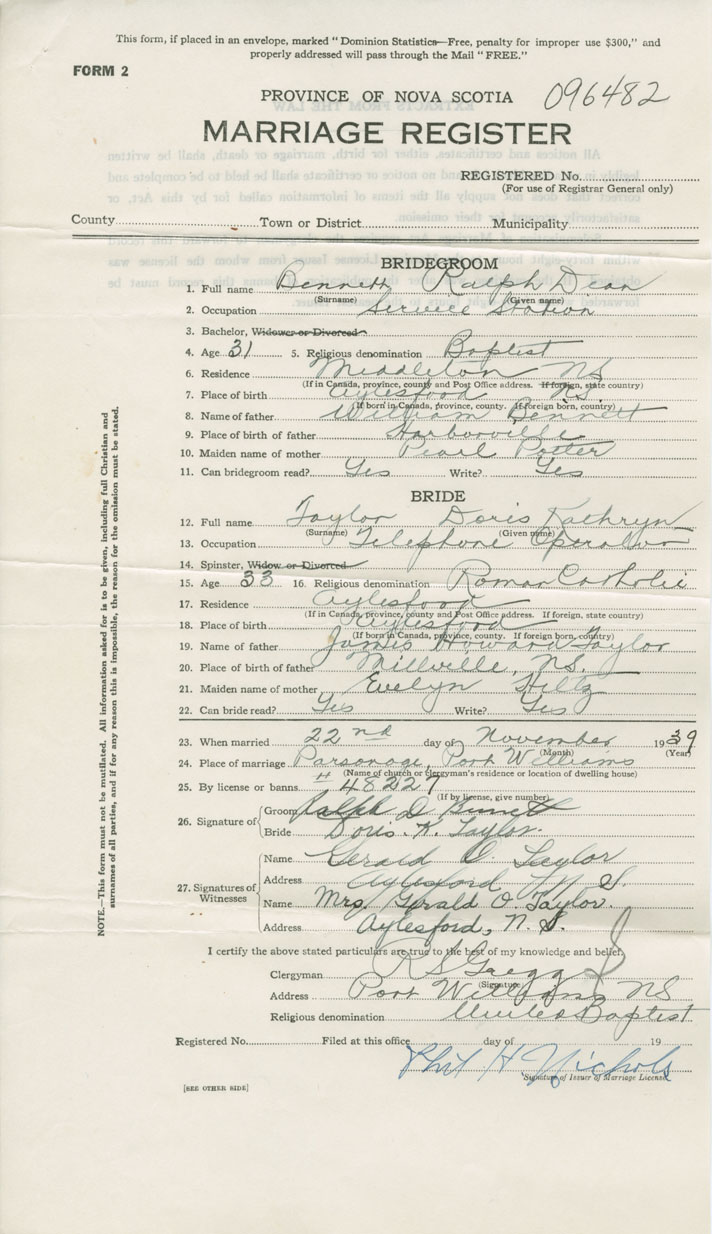 This form, if placed in an envelope, marked "Dominion Statistics—Free, penalty for improper use $300," and
properly addressed will pass through the Mail "FREE."
FORM 2
PROVINCE OF NOVA SCOTIA 096482
MARRIAGE REGISTER
REGISTERED No.
(For use of Registrar General only)
County Town or District Municipality
BRIDEGROOM
1. Full name Bennett Ralph Dean
(Surname) (Given name)
2. Occupation Service Station
3. Bachelor, Widower or Divorced
4. Age 31 5. Religious denomination Baptist
6. Residence Middleton NS
(If in Canada, province, county and Post Office address. If foreign, state country)
7. Place of birth Aylesford NS
(If born in Canada, province, county. If foreign born, country)
8. Name of father William Bennett
9. Place of birth of father Harborville
10. Maiden name of mother Pearl Potter
11. Can bridegroom read? Yes Write? Yes
BRIDE
12. Full name Taylor Doris Kathryn
(Surname) (Given name)
13. Occupation Telephone Operator
14. Spinster, Widow or Divorced
15. Age 33 16. Religious denomination Roman Catholic
17. Residence Aylesford
(If in Canada, province, county and Post Office address. If foreign, state country)
18. Place of birth Aylesford
(If born in Canada, province, county. If foreign born, country)
19. Name of father James Howard Taylor
20. Place of birth of father Millville, NS.
21. Maiden name of mother Evelyn Hiltz
22. Can bride read? Yes Write? Yes
23. When married 22nd day of November 1939
(Month) (Year)
24. Place of marriage Parsonage, Port Williams
(Name of church or clergyman's residence or location of dwelling house)
25. By license or banns # 48227
(If by license, give number)
26. Signature of Groom Ralph D Bennett
Bride Doris. K. Taylor.
27. Signatures of Witnesses
Name Gerald O. Taylor
Address Aylesford N S.
Name Mrs. Gerald O. Taylor.
Address Aylesford, N. S.
I certify the above stated particulars are true to the best of my knowledge and belief.
Clergyman R S Gregg
(Signature)
Address Port Williams NS
Religious denomination United Baptist
Registered No. Filed at this office day of 19
Phil H Nichols
Signature of Issuer of Marriage License
[SEE OTHER SIDE]
NOTE.—This form must not be mutilated. All information asked for is to be given, including full Christian and
surnames of all parties, and if for any reason this is impossible, the reason for the omission must be stated.